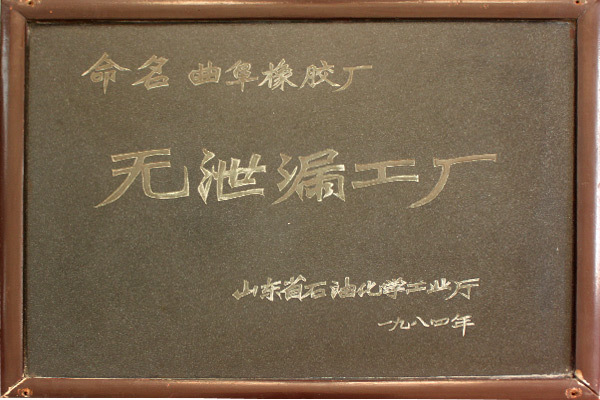 命名 曲阜橡胶厂
无泄漏工厂
山东省石油化学工业厅
一九八四年